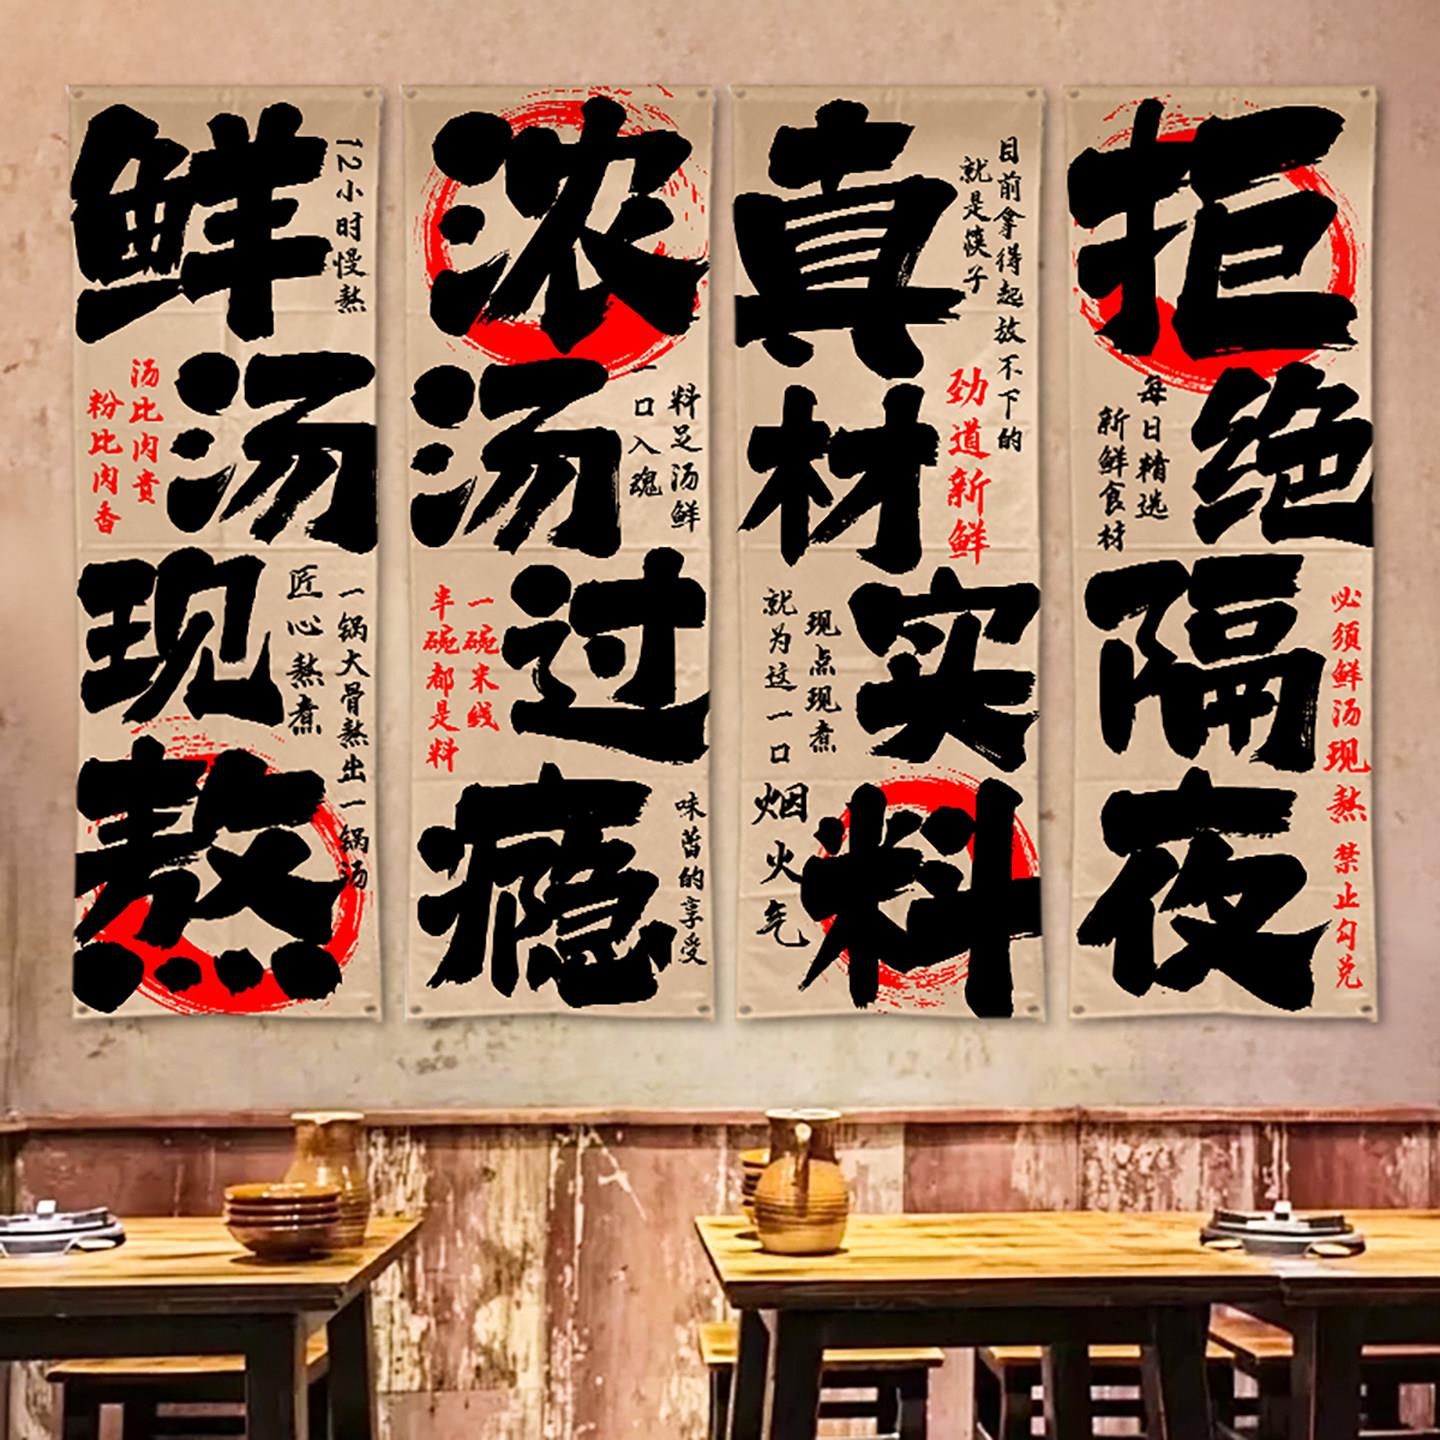 鲜汤现熬
12小时慢熬
汤比肉贵
粉比肉香
一锅大骨熬出一锅汤
匠心熬煮
浓汤过瘾
料足汤鲜
一口入魂
一碗米线
半碗都是料
味蕾的享受
真材实料
目前拿得起放不下的
就是筷子
劲道新鲜
现点现煮
就为这一口
烟火气
拒绝隔夜
每日精选
新鲜食材
必须鲜汤现熬 禁止勾兑